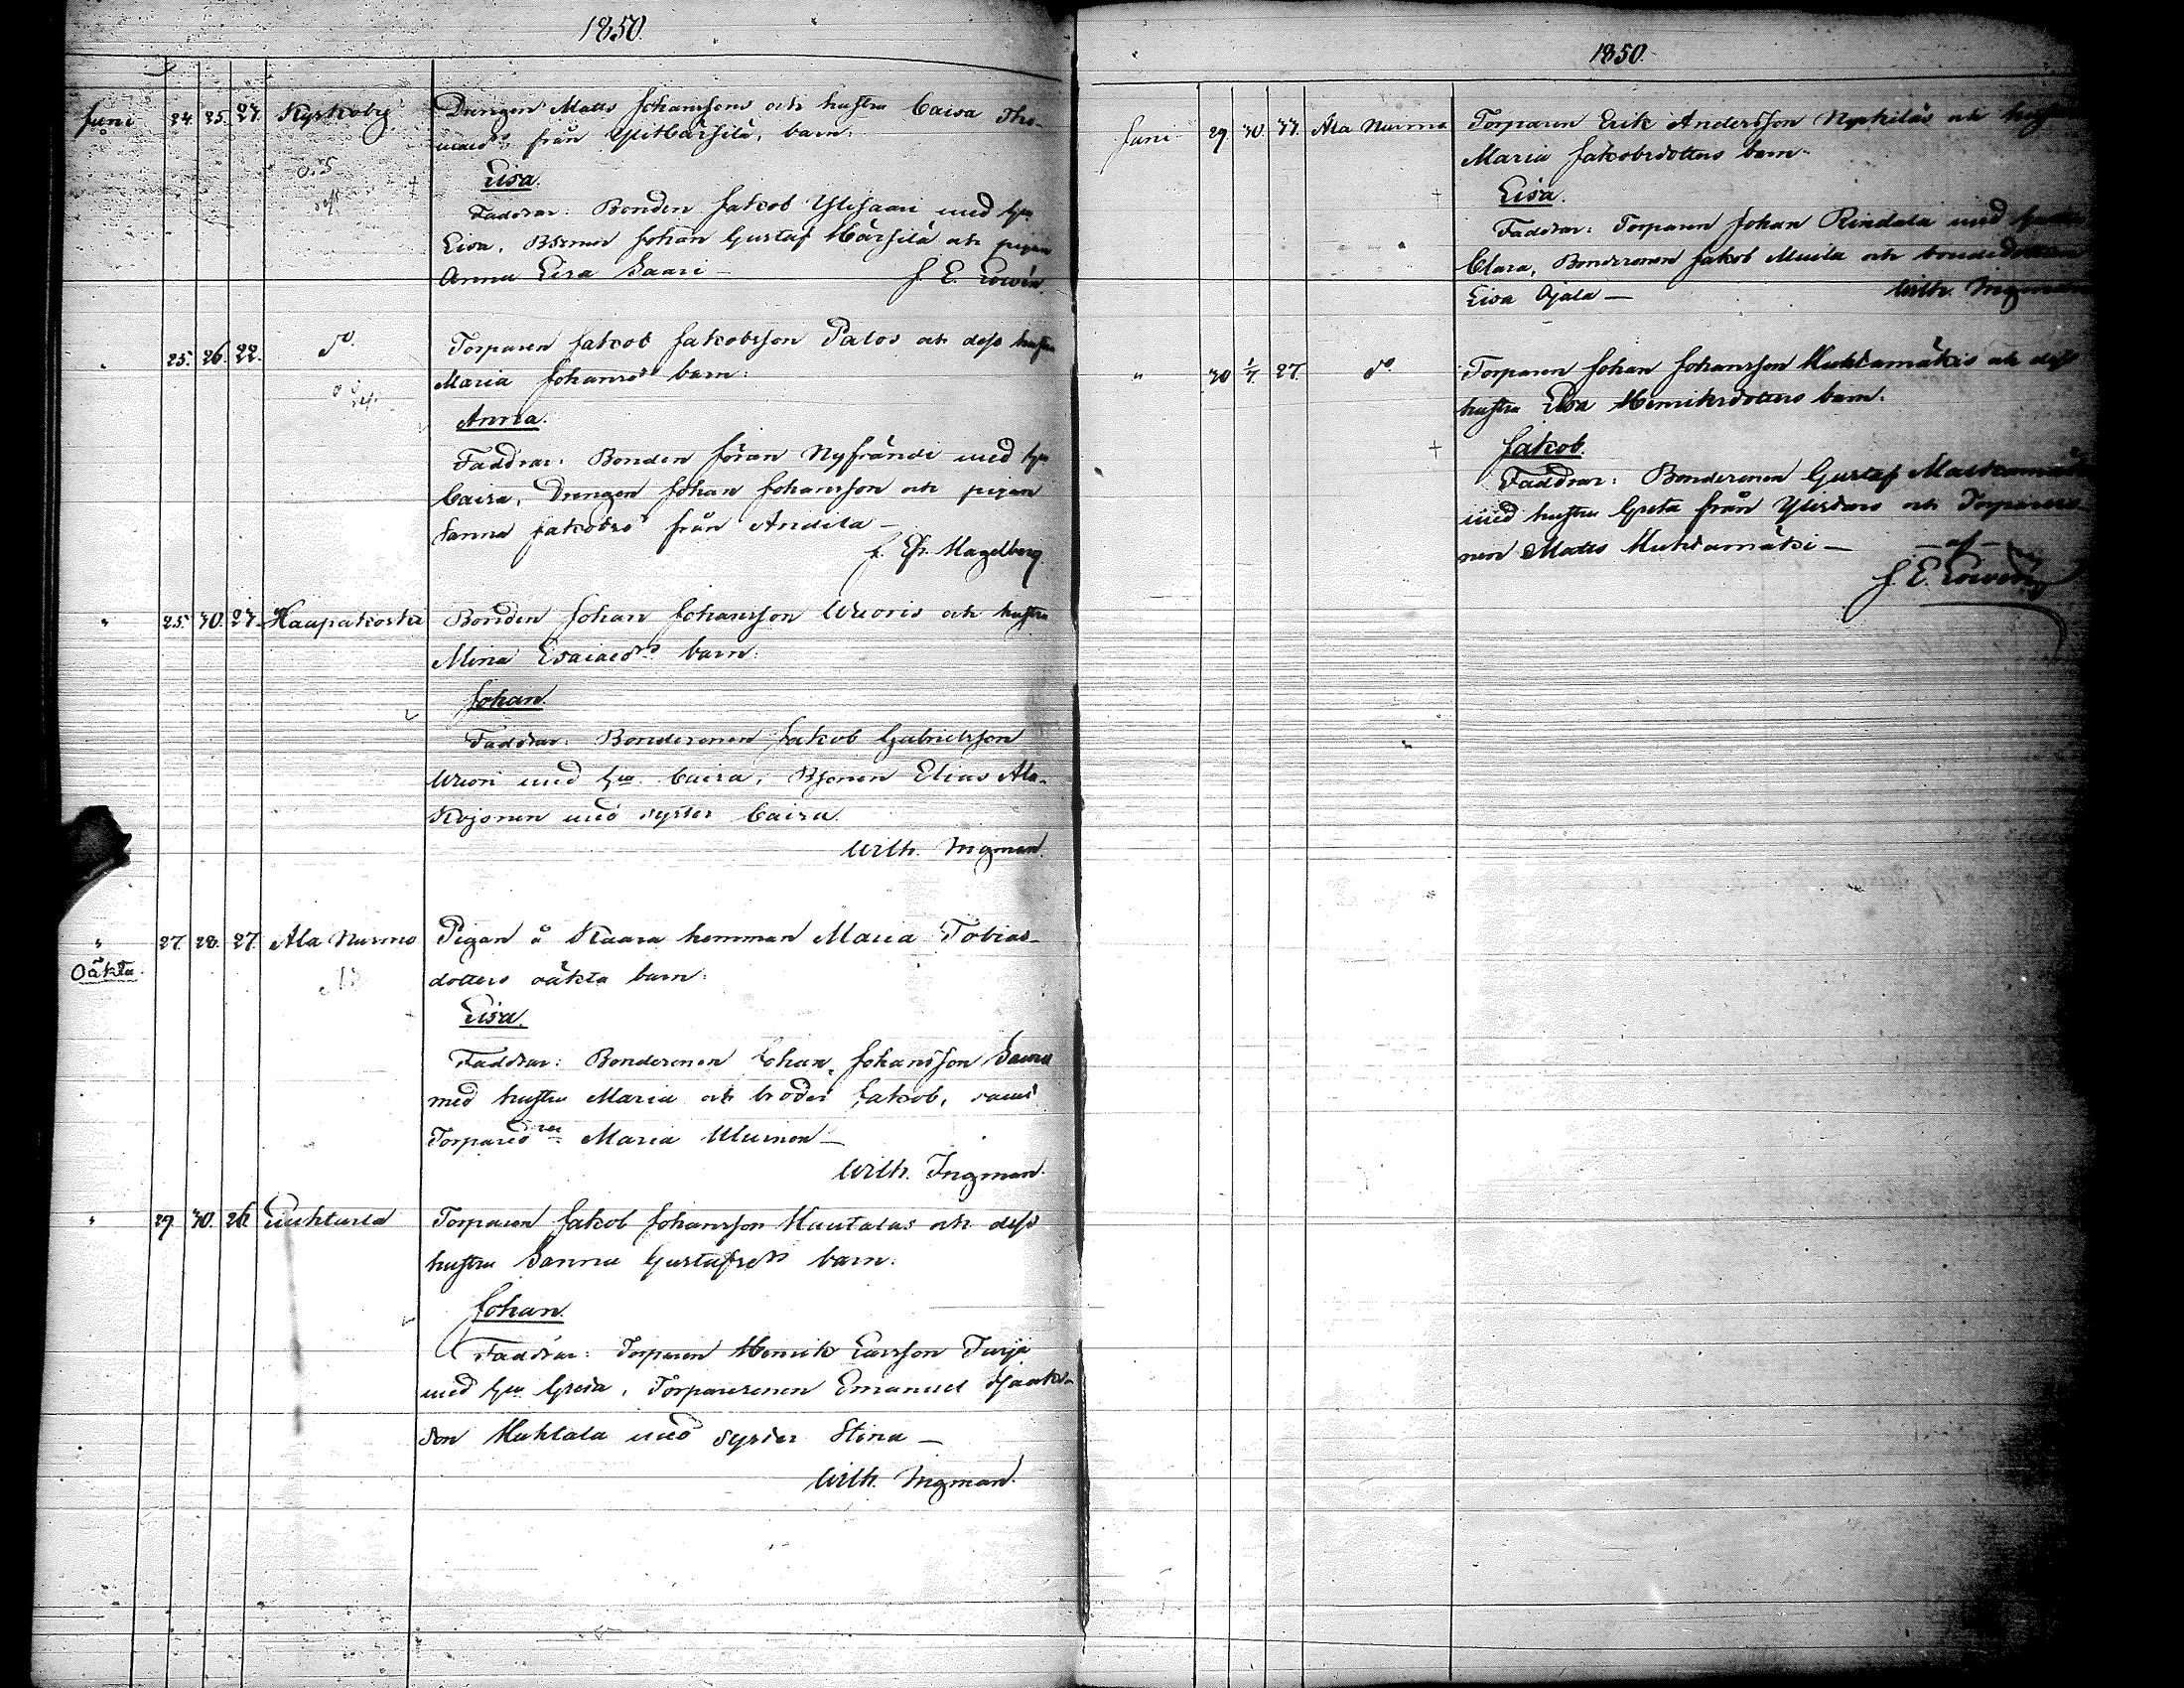 1850.
Juni 24. 25. 27. Kyrkoby Drengen Matts Johanssons och hustru Caisa Tho-
från barn.
Lisa.
Faddrar: Bonden Jakob Ylisaari med hu
Lisa, Johan Gustaf Härsilä och pigan
Anna Lisa Saari —
J. E.
" 25. 26. 22. do Torparen Jakob Jakobsson Palos och dess hustru
Maria Johansds barn:
Anna.
Faddrar: Bonden Nyfrändi med hu
Caisa, Drengen Johan Johansson och pigan
Sanna Jakobsd från Andila —
Hagelberg.
" 25. 30. 27. Haapakoski Bonden Johan Johansson Wuoris och hustru
Mina Esaiaeds barn:
Johan.
Faddrar: Bondesonen Jakob Gabrielsson
Wuori med hu Caisa, Bsonen Elias Ala-
Kojonen med syster Caisa.
Wilh. Ingman.
" 27. 28. 27. Ala Nurmo Pigan å Kaara hemman Maria Tobias-
Oäkta. dotters oäkta barn:
Lisa.
Faddrar: Bondesonen Johan Johansson
med hustru Maria och broder Jakob, samt
Maria
Wilh. Ingman.
" 29. 30. 26. Torparen Jakob Johansson Hautalas och dess
hustru Sanna Gustafsds barn:
Johan.
Faddrar: Torparen Henrik Larsson Turja
med hu Greta, Torparesonen Emanuel Isaaks-
son Huhtala med syster Stina —
Wilh. Ingman.
1850.
Juni 29. 30. 33. Ala Nurmo Torparen Erik Andersson Nyrkiläs och
Maria Jakobsdotters barn.
Lisa.
Faddrar: Torparen Johan Rindala med
Clara, Bondesonen Jakob Muila och
Lisa Ojala —
Wilh. Ingman
" 30 1/7. 27. do Torparen Johan Johansson Huhtamäkis och dess
hustru Lisa Henriksdotters barn.
Jakob.
Faddrar: Bondesonen Gustaf
med hustru Greta från Ylistaro och Torpareso-
nen Matts Huhtamäki — af —
J. E.